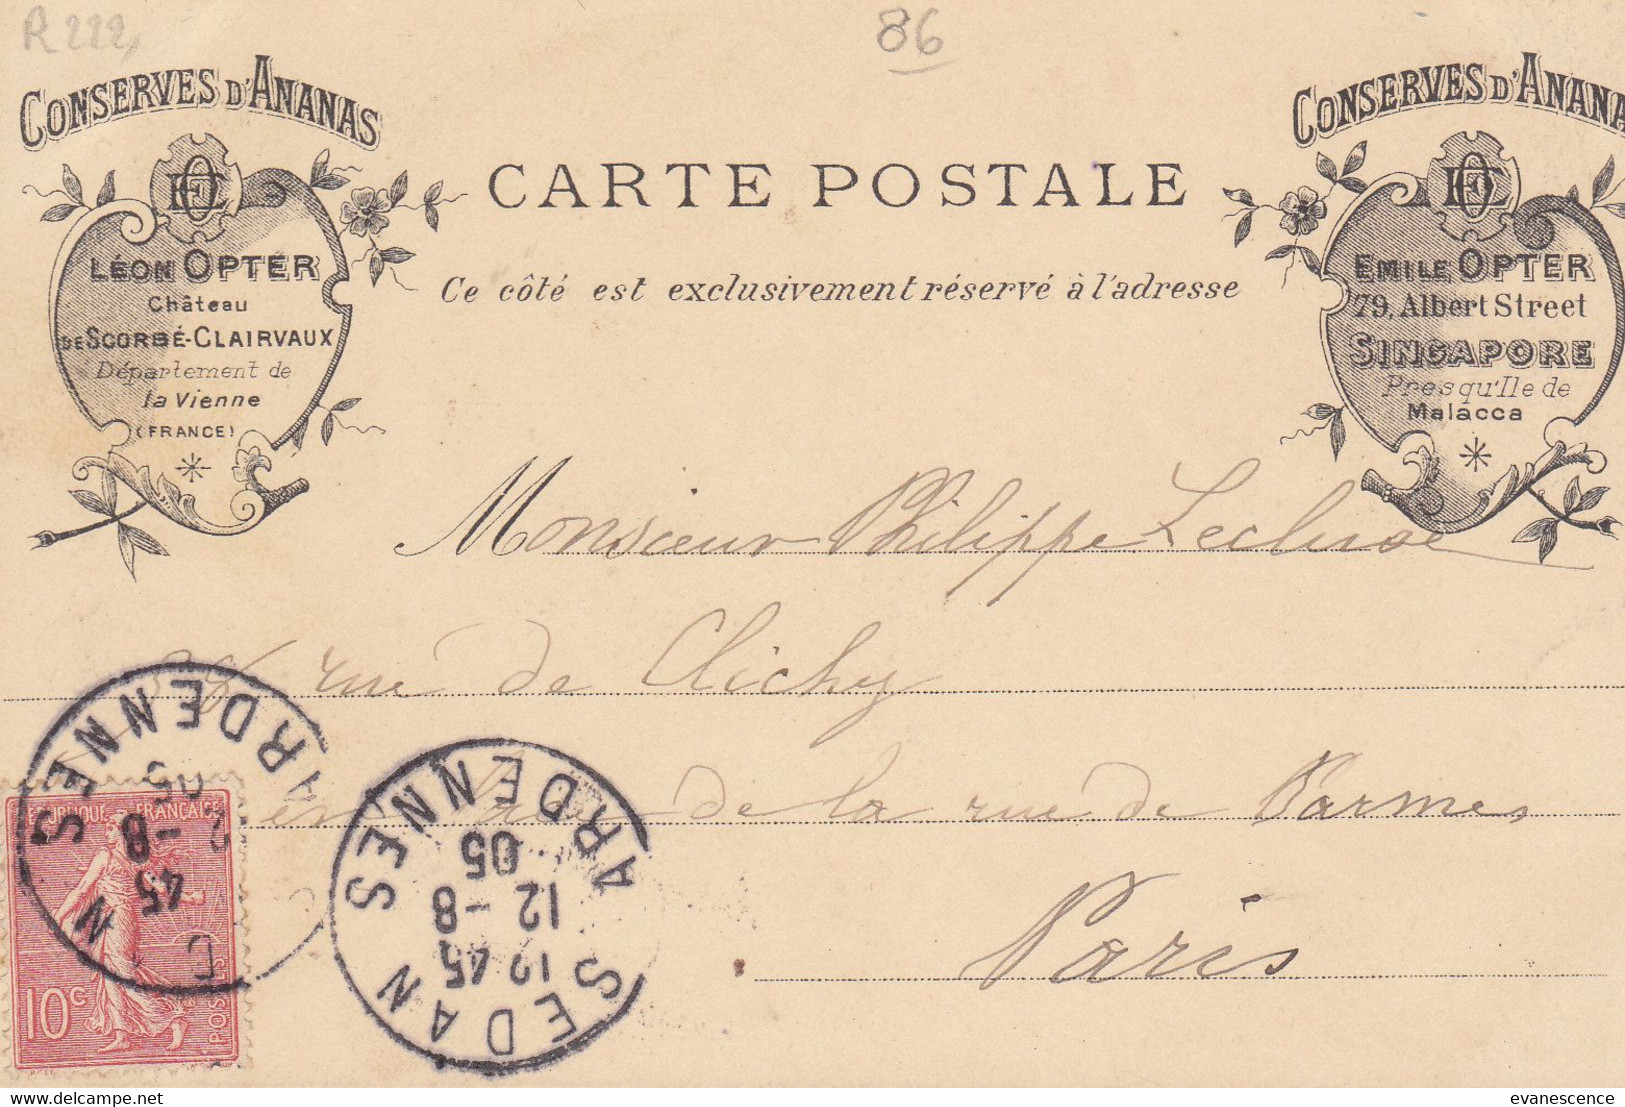 R 222,
86
CONSERVES D'ANANAS
LÉON OPTER
Château
DE SCORBÉ-CLAIRVAUX
Département de
la Vienne
(FRANCE)
CARTE POSTALE
Ce côté est exclusivement réservé à l'adresse
CONSERVES D'ANANA
EMILE OPTER
79, Albert Street
SINGAPORE
Presqu'Ile de
Malacca
Monsieur Philippe Lecluse
rue de Clichy
de la rue de Parmes
Paris
REPUBLIQUE FRANÇAISE
10c
POSTES
SEDAN
ARDENNES
12 45
12 - 8
05
ARDENNES
45
- 8
05
evanescence